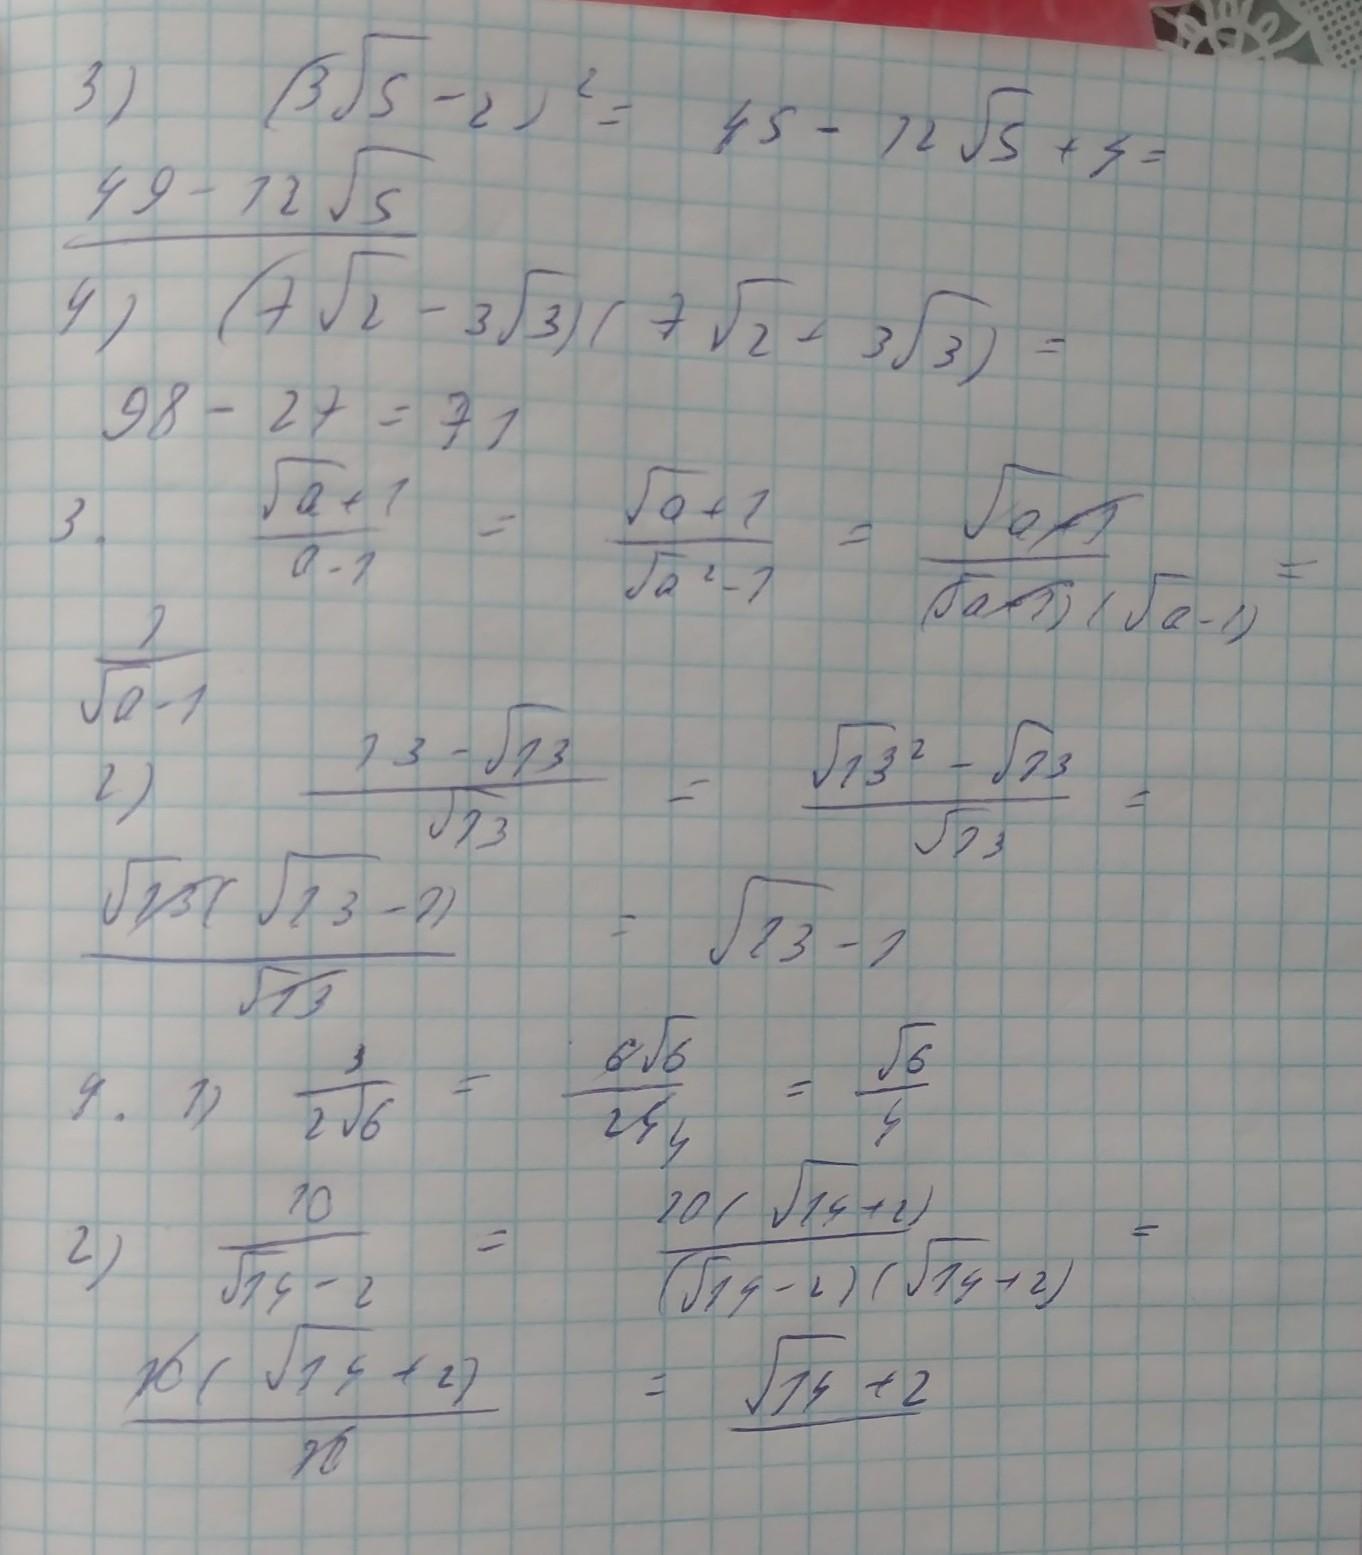 3) (3√5 - 2)² = 45 - 12√5 + 4 =
49 - 12√5
4) (7√2 - 3√3)(7√2 + 3√3) =
98 - 27 = 71
3. (√a + 1)/(a - 1) = (√a + 1)/(√a² - 1) = (√a + 1)/((√a + 1)(√a - 1)) =
1/(√a - 1)
2) (13 - √13)/√13 = (√13² - √13)/√13 =
(√13(√13 - 1))/√13 = √13 - 1
4. 1) 3/(2√6) = 6√6/24 4 = √6/4
2) 10/(√14 - 2) = 10(√14 + 2)/((√14 - 2)(√14 + 2)) =
10(√14 + 2)/10 = √14 + 2